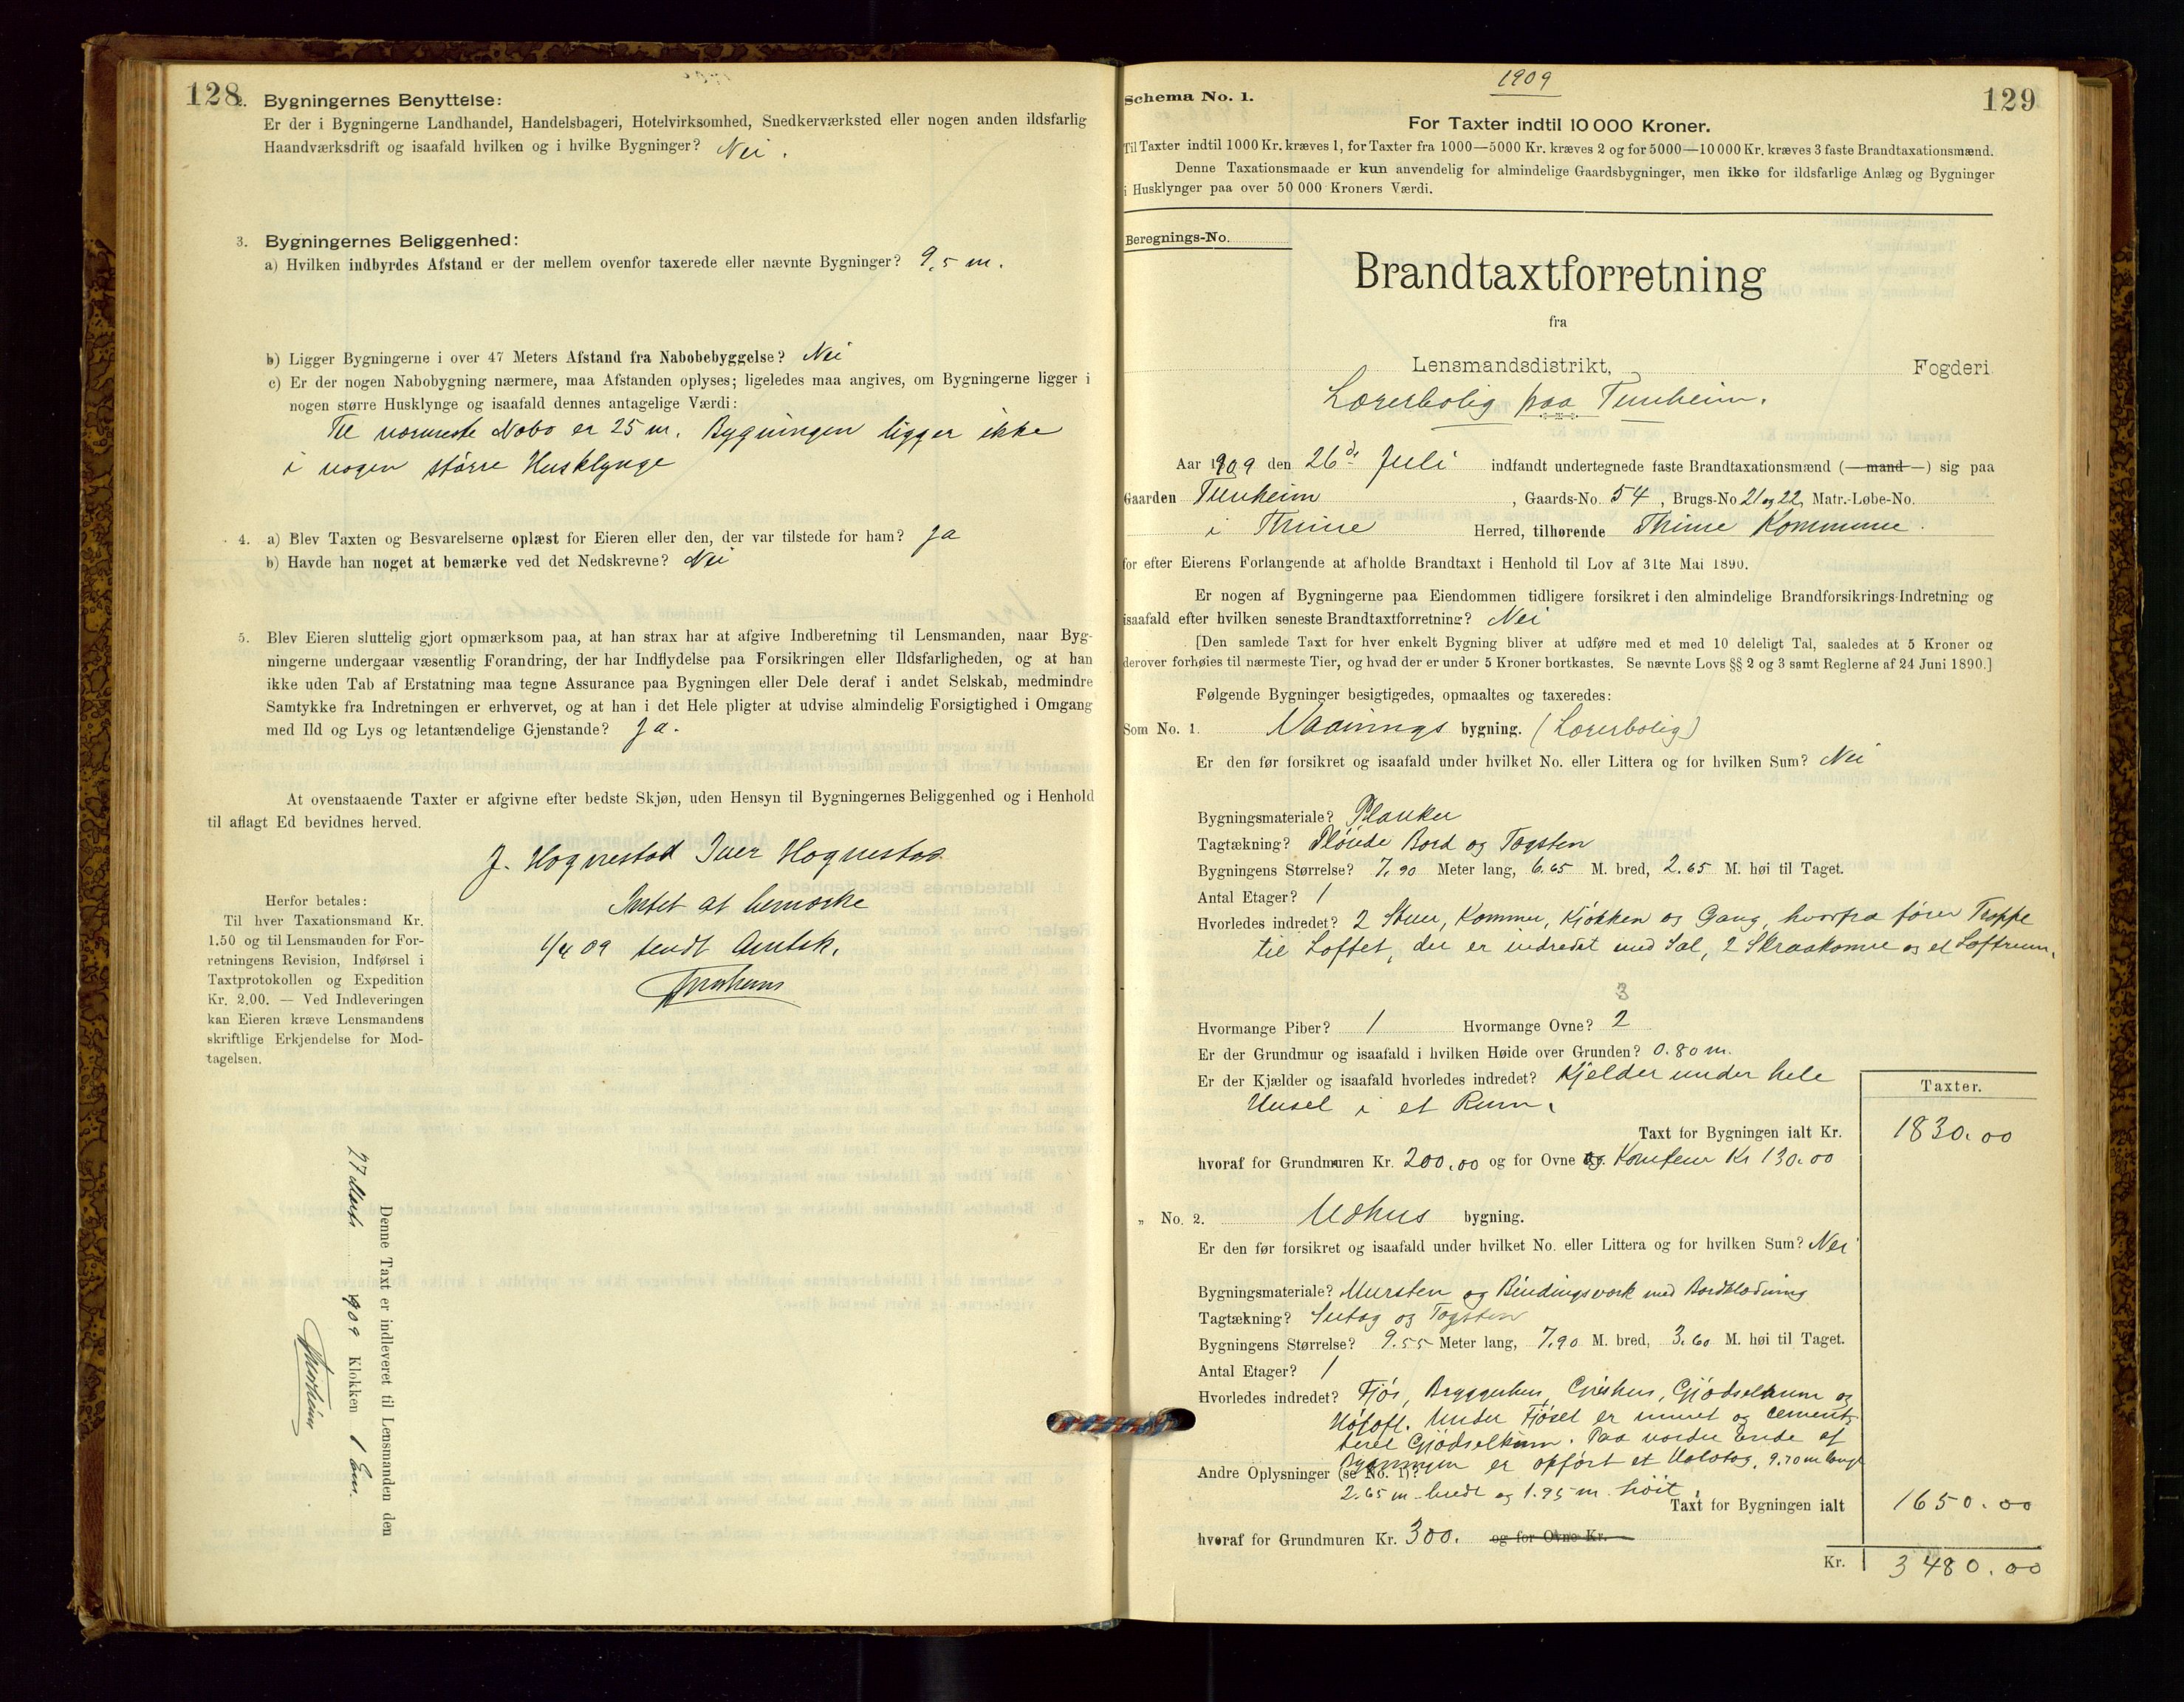 128
2. Bygningernes Benyttelse:
Er der i Bygningerne Landhandel, Handelsbageri, Hotelvirksomhed, Snedkerværksted eller nogen anden ildsfarlig
Haandværksdrift og isaafald hvilken og i hvilke Bygninger? Nei.
3. Bygningernes Beliggenhed:
a) Hvilken indbyrdes Afstand er der mellem ovenfor taxerede eller nævnte Bygninger? 9,5 m.
b) Ligger Bygningerne i over 47 Meters Afstand fra Nabobebyggelse? Nei
c) Er der nogen Nabobygning nærmere, maa Afstanden oplyses; ligeledes maa angives, om Bygningerne ligger i
nogen større Husklynge og isaafald dennes antagelige Værdi:
Til nærmeste Nabo er 25 m. Bygningen ligger ikke
i nogen større Husklynge
4. a) Blev Taxten og Besvarelserne oplæst for Eieren eller den, der var tilstede for ham? Ja
b) Havde han noget at bemærke ved det Nedskrevne? Nei
5. Blev Eieren sluttelig gjort opmærksom paa, at han strax har at afgive Indberetning til Lensmanden, naar Byg-
ningerne undergaar væsentlig Forandring, der har Indflydelse paa Forsikringen eller Ildsfarligheden, og at han
ikke uden Tab af Erstatning maa tegne Assurance paa Bygningen eller Dele deraf i andet Selskab, medmindre
Samtykke fra Indretningen er erhvervet, og at han i det Hele pligter at udvise almindelig Forsigtighed i Omgang
med Ild og Lys og letantændelige Gjenstande? Ja.
At ovenstaaende Taxter er afgivne efter bedste Skjøn, uden Hensyn til Bygningernes Beliggenhed og i Henhold
til aflagt Ed bevidnes herved.
J. Hognestad Iver Hognestad
Intet at bemærke
sendt Amtsk.
Herfor betales:
Til hver Taxationsmand Kr.
1.50 og til Lensmanden for For-
retningens Revision, Indførsel i
Taxtprotokollen og Expedition
Kr. 2.00. — Ved Indleveringen
kan Eieren kræve Lensmandens
skriftlige Erkjendelse for Mod-
tagelsen.
Denne Taxt er indleveret til Lensmanden den
27 Marts 1909 Klokken 1 Em.
1909
Schema No. 1.
129
For Taxter indtil 10 000 Kroner.
Til Taxter indtil 1000 Kr. kræves 1, for Taxter fra 1000—5000 Kr. kræves 2 og for 5000—10 000 Kr. kræves 3 faste Brandtaxationsmænd.
Denne Taxationsmaade er kun anvendelig for almindelige Gaardsbygninger, men ikke for ildsfarlige Anlæg og Bygninger
i Husklynger paa over 50 000 Kroners Værdi.
Beregnings-No.
Brandtaxtforretning
fra
Lensmandsdistrikt, Fogderi
Lærerbolig paa Tunheim.
Aar 1909 den 26de Juli indfandt undertegnede faste Brandtaxationsmænd (—mand—) sig paa
Gaarden Tunheim, Gaards-No. 54, Brugs-No 21 og 22, Matr.-Løbe-No.
i Thime Herred, tilhørende Thime Kommune.
for efter Eierens Forlangende at afholde Brandtaxt i Henhold til Lov af 31te Mai 1890.
Er nogen af Bygningerne paa Eiendommen tidligere forsikret i den almindelige Brandforsikrings-Indretning og
isaafald efter hvilken seneste Brandtaxtforretning? Nei
[Den samlede Taxt for hver enkelt Bygning bliver at udføre med et med 10 deleligt Tal, saaledes at 5 Kroner og
derover forhøies til nærmeste Tier, og hvad der er under 5 Kroner bortkastes. Se nævnte Lovs §§ 2 og 3 samt Reglerne af 24 Juni 1890.]
Følgende Bygninger besigtigedes, opmaaltes og taxeredes:
Som No. 1. Vaanings bygning. (Lærerbolig)
Er den før forsikret og isaafald under hvilket No. eller Littera og for hvilken Sum? Nei
Bygningsmateriale? Planker
Tagtækning? Pløiede Bord og Tagsten
Bygningens Størrelse? 7,90 Meter lang, 6.65 M. bred, 2.65 M. høi til Taget.
Antal Etager? 1
Hvorledes indredet? 2 Stuer, Kammer, Kjøkken og Gang, hvorfra fører Trappe
til Loftet, der er indredet med Sal, 2 Skraakamre og et Loftrum.
3
Hvormange Piber? 1 Hvormange Ovne? 2
Er der Grundmur og isaafald i hvilken Høide over Grunden? 0.80 m.
Er der Kjælder og isaafald hvorledes indredet? Kjelder under hele
Huset i et Rum.
Taxter.
Taxt for Bygningen ialt Kr. 1830.00
hvoraf for Grundmuren Kr. 200.00 og for Ovne og Komfeur Kr 130.00
„ No. 2. Udhus bygning.
Er den før forsikret og isaafald under hvilket No. eller Littera og for hvilken Sum? Nei
Bygningsmateriale? Mursten og Bindingsværk med Bordklædning
Tagtækning? Sutag og Tagsten
Bygningens Størrelse? 9.55 Meter lang, 7.90 M. bred, 3.60 M. høi til Taget.
Antal Etager? 1
Hvorledes indredet? Fjøs, Bryggerhus, Grishus, Gjødselrum og
Høloft. Under Fjøset er muret og cement-
teret Gjødselrum. Paa nordre Ende af
Bygningen er opført et Halvtag, 9.70 m langt
Andre Oplysninger (se No. 1)?
2.65 m bredt og 1.95 m høit.
Taxt for Bygningen ialt 1650.00
hvoraf for Grundmuren Kr. 300. og for Ovne Kr.
Kr. 3480.00